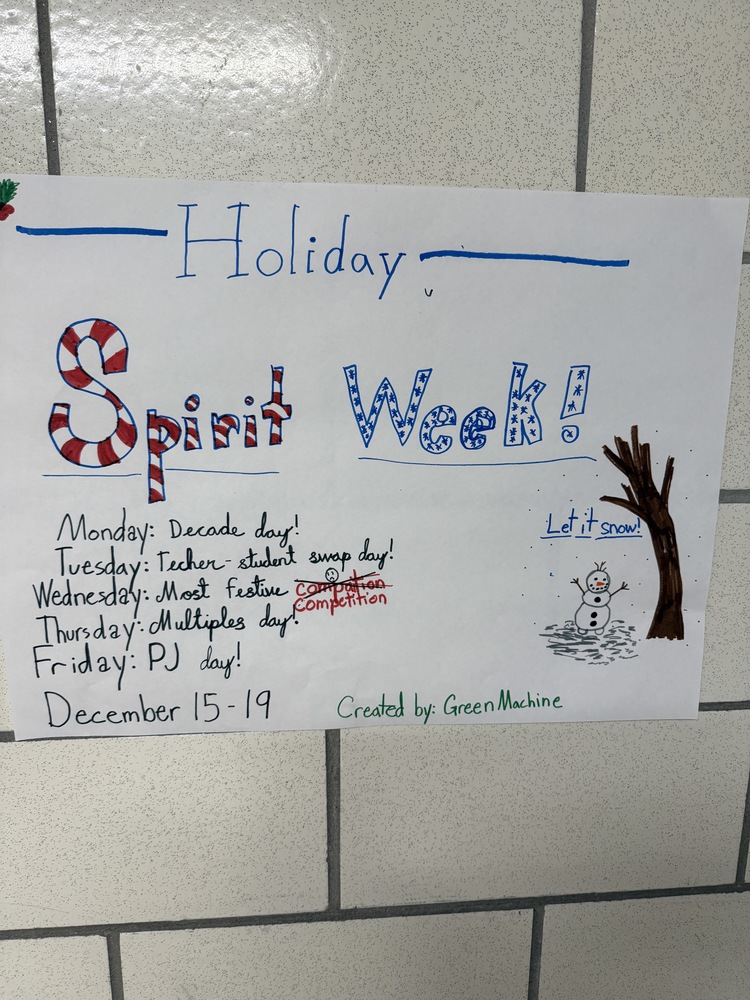 Holiday
Spirit Week!
Monday: Decade day!
Tuesday: Techer-student swap day!
Wednesday: Most festive
Competition
Thursday: Multiples day!
Friday: PJ day!
December 15-19
Created by: Green Machine
Let it snow!